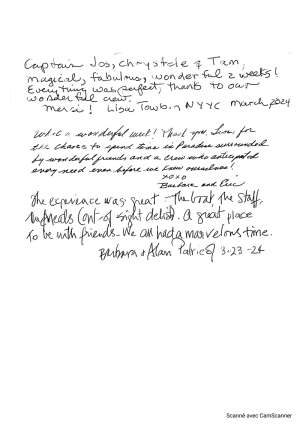 Captain Jos, Chrystole & Tam,
magical, fabulous, wonderful 2 weeks!
Everything was perfect, thanks to our
wonderful crew.
Merci! Lisa NYYC March 2024
What a wonderful week! Thank you, for
the chance to spend time in Paradise surrounded
by wonderful friends and a crew who anticipated
every need even before we knew ourselves!
xoxo
Barbara and Eric
The experience was great - The boat The Staff,
The Meals (out-of sight delish). A great place
To be with friends - We all had a marvelous time.
Barbara & Alan 3-23-24
Scanné avec CamScanner